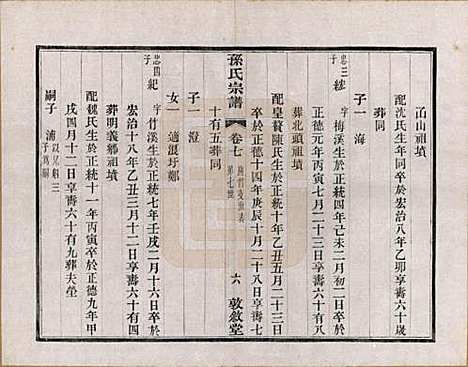 卥山祖墳
配沈氏生於同年卒於宏治八年乙卯享壽六十歲
葬同
子一 海
忠三子 綋 字梅溪生於正統四年己未二月初二日卒於
正德元年丙寅七月二十三日享壽六十有八
葬北頭祖墳
配皇甫陳氏生於正統十年乙丑五月二十三日
卒於正德十四年庚辰十月二十八日享壽七
孫氏宗譜 卷七 第七世 六 敦敘堂
十有五葬同
子一 澄
女一 適浪圩鄭
忠四子 紀 字竹溪生於正統七年壬戌二月十六日卒於
宏治十八年乙丑三月十二日享壽六十有四
葬明義鄉祖墳
配魏氏生於正統十一年丙寅卒於正德九年甲
戌四月十二日享壽六十有九葬夫塋
嗣子 浦 以兄綱三子爲嗣